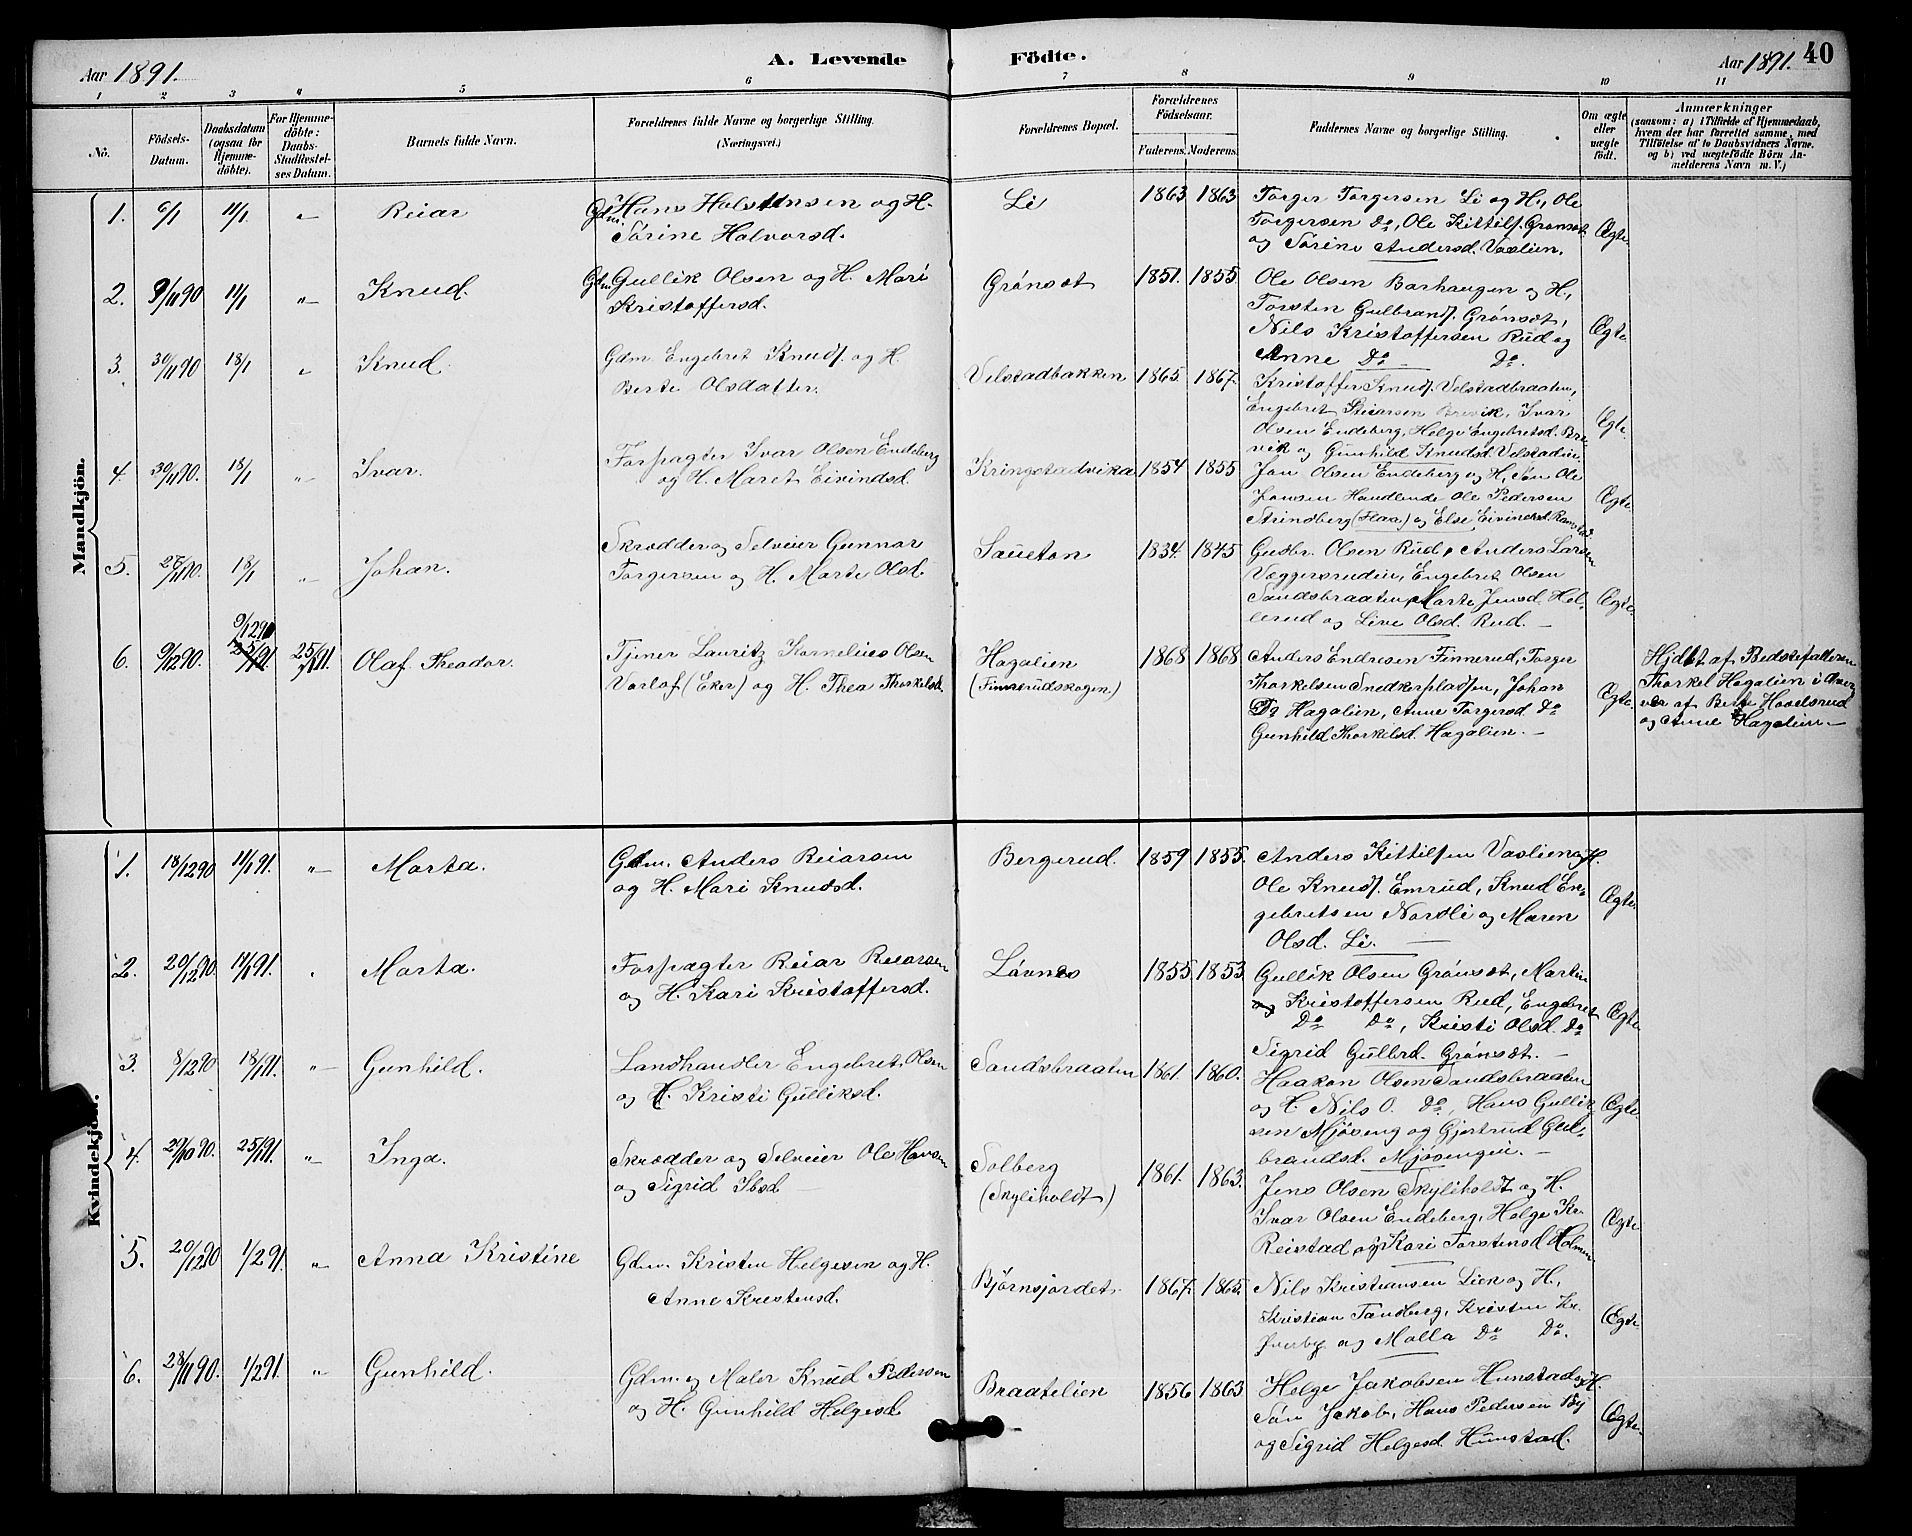 Aar 1891.
A. Levende Födte.
Aar 1891. 40
1 2 3 4 5 6 7 8 9 10 11
No.
Födsels-Datum.
Daabsdatum (ogsaa för Hjemme-döbte).
For Hjemme-döbte: Daabs-Stadfæstel-ses Datum.
Barnets fulde Navn.
Forældrenes fulde Navne og borgerlige Stilling. (Næringsvei.)
Forældrenes Bopæl.
Forældrenes Födselsaar.
Faderens. Moderens.
Faddernes Navne og borgerlige Stilling.
Om ægte eller uægte födt.
Anmærkninger
(saasom: a) i Tilfælde af Hjemmedaab, hvem der har forrettet samme, med Tilföielse af to Daabsvidners Navne. og b) ved uægtefödte Börn An-melderens Navn m. V.)
Mandkjön.
1. 6/1 11/1 " Reiar Gdm. Hans Halstensen og H. Li 1863 1863 Torger Torgersen Li og H., Ole
Sørine Halvorsd. Torgersen Do, Ole Kittils. Grønset
og Sørine Andersd. Vaslien. Ægte.
2. 9/11 90 11/1 " Knud. Gdm. Gullik Olsen og H. Mari Grønset 1851. 1855. Ole Olsen Barhaugen og H.,
Kristoffersd. Torsten Gulbrands. Grønset,
Nils Kristoffersen Rud og Ægte.
Anne Do Do.
3. 30/11 90 18/1 " Knud. Gdm. Engebret Knuds. og H. Velstadbakken 1865 1867. Kristoffer Knuds. Velstadbraaten,
Berte Olsdatter. Engebret Steiarsen Brevik, Ivar
Olsen Endeberg, Helge Engebretsd. Bre Ægte.
vik og Gunhild Knudsd. Velstadbr.
4. 30/11 90. 18/1 " Ivar. Forpagter Ivar Olsen Endeberg Kringstadvika 1854 1855 Jan Olsen Endeberg og H, Søn Ole
og H. Maret Eivindsd. Jansen Handlende Ole Pedersen Ægte
Strindberg (Flaa) og Else Eivindsd. Ramstad
5. 26/11 90. 18/1 " Johan. Skrædder og Selveier Gunnar Saueton 1834. 1845 Gudbr. Olsen Rud, Anders Larsen
Torgersen og H. Marte Olsd. Væggersrudein, Engebret Olsen
Sandsbraaten, Marte Jensd. Hel- Ægte.
lerud og Live Olsd. Rud. —
6. 9/12 90. 9/12 90 25/1 91 25/1 91. Olaf Theodor. Tjener Lauritz Kornelius Olsen Hagalien 1868 1868. Anders Endresen Finnerud, Torger
Varlof (Eker) og H. Thea Thorkelsd. (Finnerudskogen.) Thorkelsen Snedkerpladsen, Johan
Do Hagalien, Anne Torgersd. Do Ægte.
Gunhild Thorkelsd. Hagalien. —
Hjdbt af Bedstefaderen
Thorkel Hagalien i Nær
vær af Berte Havelsrud
og Anne Hagalien —
Kvindekjön.
1. 18/12 90 11/1 91. " Marta. Gdm. Anders Reiarsen Bergerud. 1859 1855. Anders Kittilsen Vaslien og H.
og H. Mari Knudsd. Ole Knuds. Emrud, Knud En-
gebretsen Nordli og Maren Ægte.
Olsd. Li. —
2. 20/12 90. 11/1 91. " Marta. Forpagter Reiar Reiarsen Løvnes 1855. 1853 Gullik Olsen Grønset, Martin
og H. Kari Kristoffersd. og Kristoffersen Rud, Engebret
Do Do, Kristi Olsd. Do Ægte
Sigrid Gullerd. Grønset. —
3. 8/12 90 18/1 91. " Gunhild. Landhandler Engebret Olsen Sandsbraaten 1861. 1860. Haakon Olsen Sandsbraaten
og H. Kristi Gulliksd. og H. Nils O. Do, Hans Gullik Ægte
sen Mjøseng og Gjertrud Gul-
brandsd. Mjøsengen. —
4. 29/10 90. 25/1 91. " Inga. Skrædder og Selveier Ole Hansen Solberg 1861. 1863. Jens Olsen Skyliholdt og H.
og Sigrid Ibsd (Skyliholdt) Ivar Olsen Endeberg, Helge Kr. Ægte
Reistad og Kari Torstensd. Holmen
5. 20/12 90 1/2 91. " Anna Kristine Gdm. Kristen Helgesen og H. Bjørnsjordet. 1867. 1865. Nils Kristiansen Lien og H.,
Anne Kristensd. Kristian Tandberg, Kristen Kr. Ægte
og Malla Do Do.
6. 28/11 90. 1/2 91. " Gunhild. Gdm. og Maler Knud Pedersen Braatelien 1856 1863 Helge Jakobsen Hunstad og H.
og H. Gunhild Helgesd. Søn Jakob, Hans Pedersen By Ægte.
og Sigrid Helgesd. Hunstad.